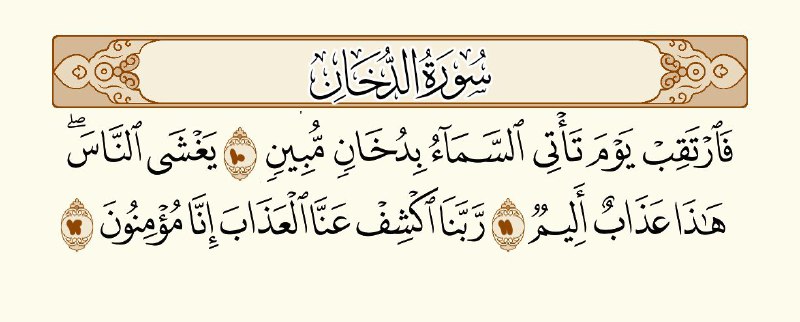 سُورَةُ الدُّخَانِ
فَٱرْتَقِبْ يَوْمَ تَأْتِى ٱلسَّمَآءُ بِدُخَانٍ مُّبِينٍ ١٠ يَغْشَى ٱلنَّاسَۖ
هَـٰذَا عَذَابٌ أَلِيمٌ ١١ رَّبَّنَا ٱكْشِفْ عَنَّا ٱلْعَذَابَ إِنَّا مُؤْمِنُونَ ١٢